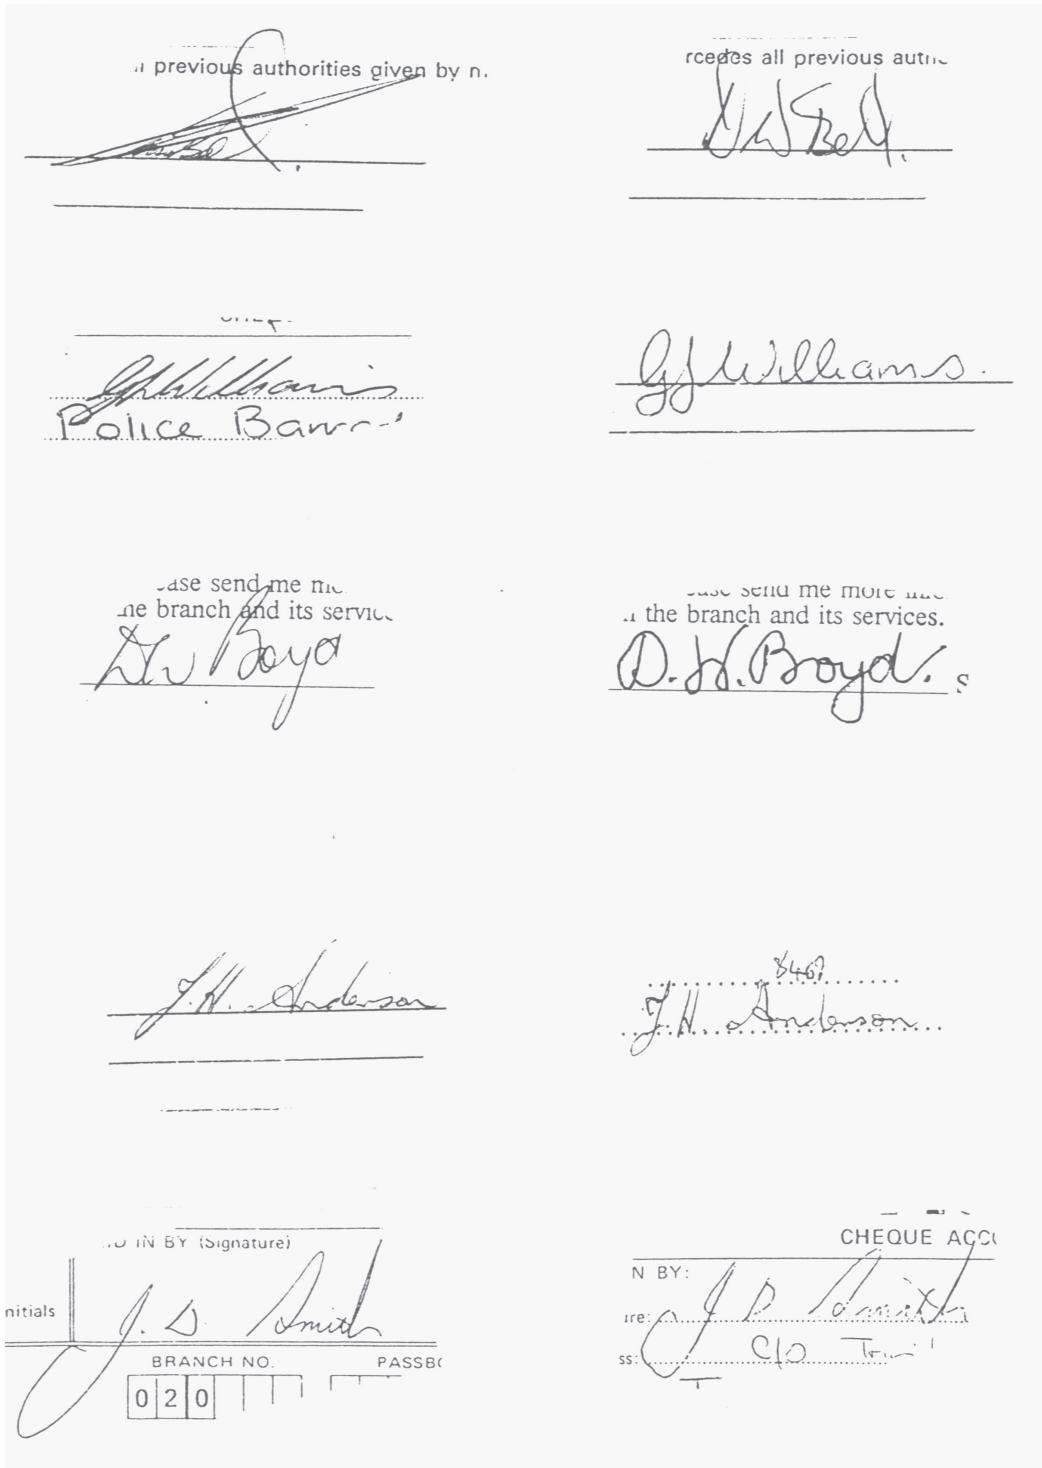 previous authorities given by
rcedes all previous
D W Bell.
G J Williams
Police
G J Williams.
ase send me
branch and its
D W Boyd
send me more
the branch and its services.
D. W. Boyd. s
J. H. Anderson
8469
J. H. Anderson
IN BY (Signature)
nitials
J. D Smith
BRANCH NO. PASSBO
020
CHEQUE ACC
N BY:
ire: J D Smith
ss: C/O